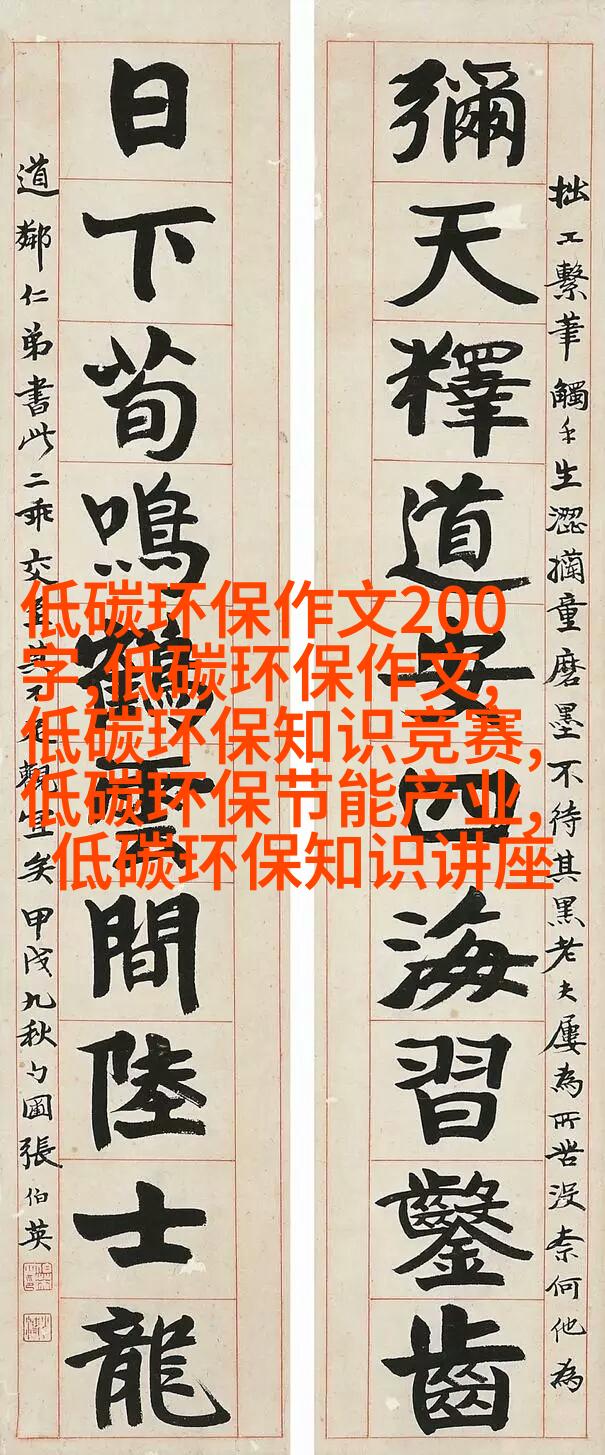 彌天釋道安四海習鑿齒
日下荀鳴鶴雲間陸士龍
拙工繫筆觸手生澀童磨墨不待其黑老夫屢為所苦沒柰何他為
道鄰仁弟書此二乖交其不觀宜矣甲戌九秋勺圃張伯英
低碳环保作文200
字,低碳环保作文,
低碳环保知识竞赛,
低碳环保节能产业,
低碳环保知识讲座